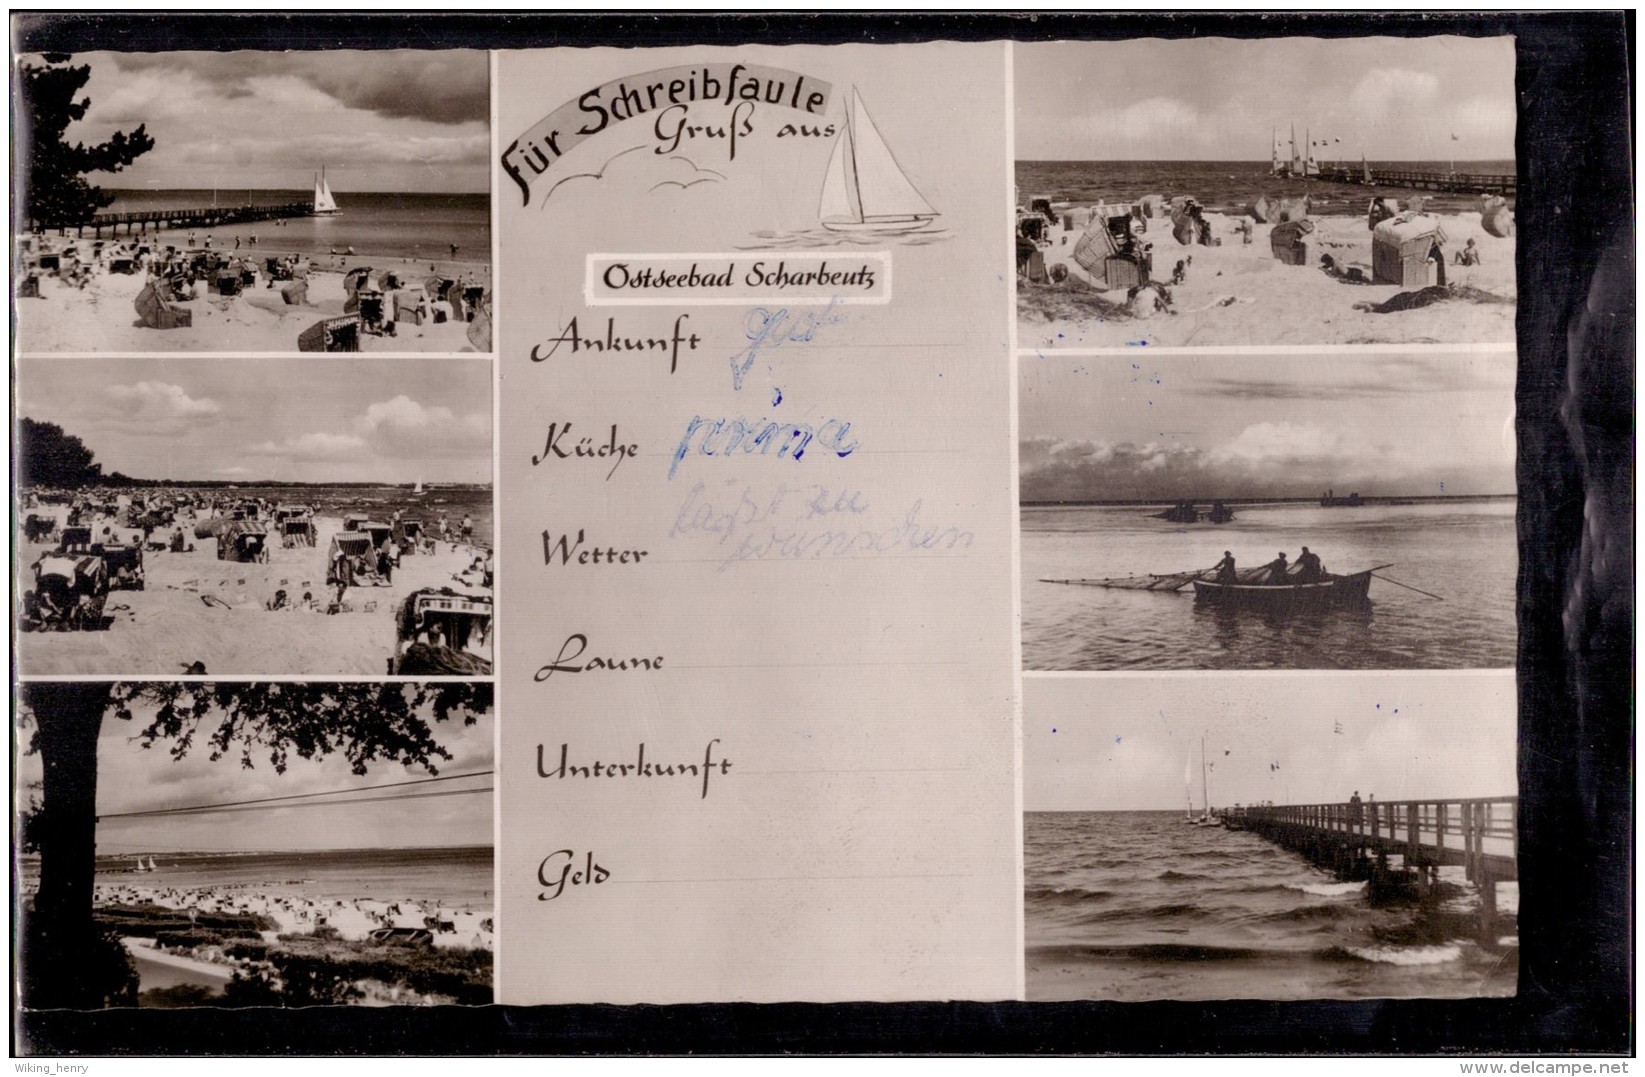 Für Schreibfaule
Gruß aus
Ostseebad Scharbeutz
Ankunft gut
Küche prima
Wetter läßt zu
wünschen
Laune
Unterkunft
Geld
Wiking_henry
delcampe.net